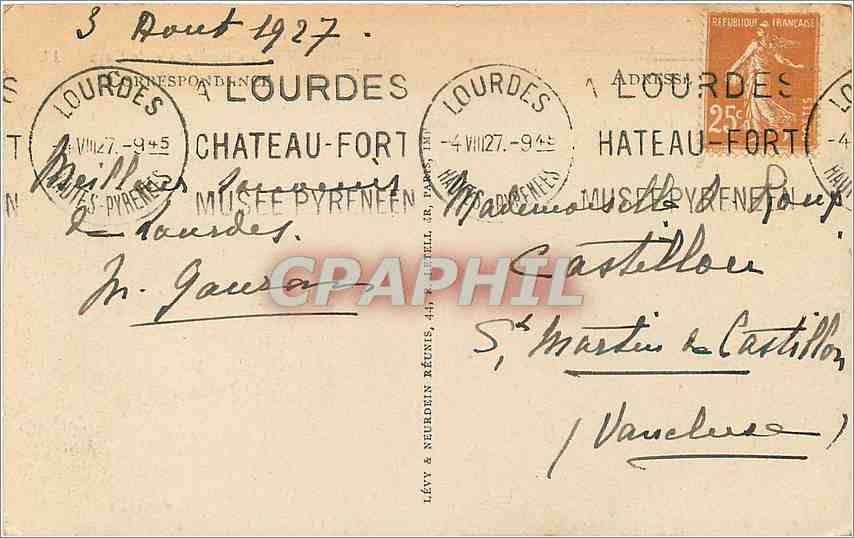 3 Aout 1927.
CORRESPONDANCE
ADRESSE
REPUBLIQUE FRANÇAISE
25c
POSTES
LOURDES
-4 VIII 27.-9 45
HAUTES-PYRENEES
A LOURDES
CHATEAU-FORT
MUSEE PYRENEEN
LOURDES
-4 VIII 27.-9 45
HAUTES-PYRENEES
A LOURDES
HATEAU-FORT
MUSEE PYRENEEN
Meilleurs souvenirs
de Lourdes.
M.
LÉVY & NEURDEIN RÉUNIS, 44, LETELLIER, PARIS, IMP
Mademoiselle
Castillon
St Martin de Castillon
(Vaucluse)
CPAPHIL